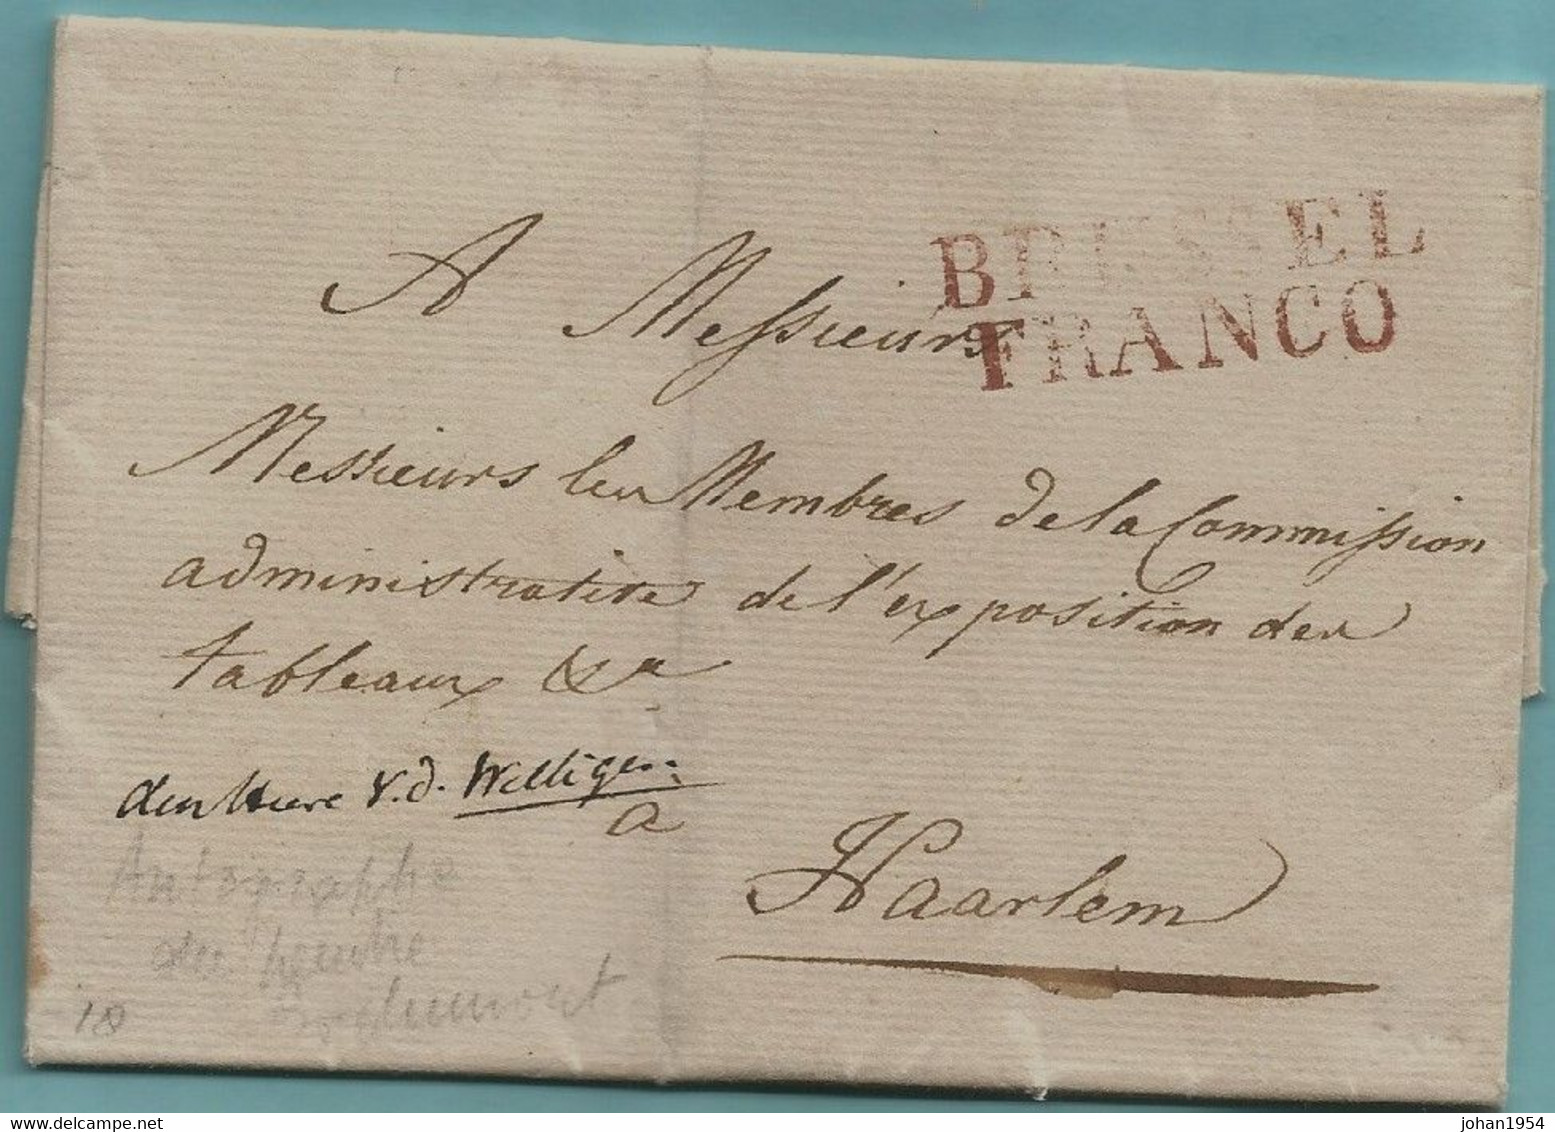 BRUSSEL
FRANCO
A Messieurs
Messieurs les Membres de la Commission
administrative de l'exposition des
tableaux &a
den Heere v.d. Willigen
a
Haarlem
Autographe
du peintre
18
johan1954